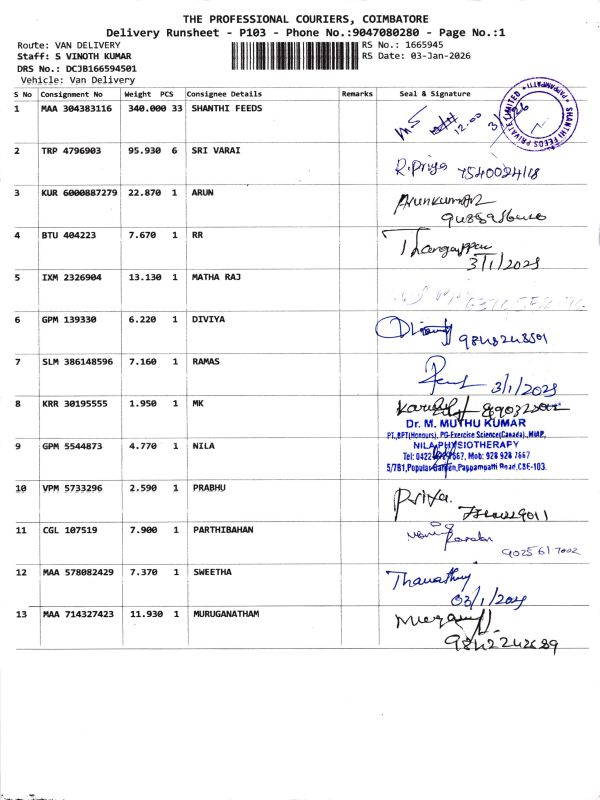 THE PROFESSIONAL COURIERS, COIMBATORE
Delivery Runsheet - P103 - Phone No.:9047080280 - Page No.:1
Route: VAN DELIVERY RS No.: 1665945
Staff: S VINOTH KUMAR RS Date: 03-Jan-2026
DRS No.: DCJB166594501
Vehicle: Van Delivery
S No Consignment No Weight PCS Consignee Details Remarks Seal & Signature
1 MAA 304383116 340.000 33 SHANTHI FEEDS 12.00
SHANTHI FEEDS PRIVATE LIMITED
2 TRP 4796903 95.930 6 SRI VARAI
R.Priya
3 KUR 6000887279 22.870 1 ARUN
Arunkumar
4 BTU 404223 7.670 1 RR
3/1/2023
5 IXM 2326904 13.130 1 MATHA RAJ
6 GPM 139330 6.220 1 DIVIYA
7 SLM 386148596 7.160 1 RAMAS
3/1/2023
8 KRR 30195555 1.950 1 MK
Dr. M. MUTHU KUMAR
PT.,BPT(Honours), PG-Exercise Science(Canada)., MIAP.
9 GPM 5544873 4.770 1 NILA
NILA PHYSIOTHERAPY
Mob: 928 928 7667
5/781,Popular Garden,Pappampatti Road,CBE-103.
10 VPM 5733296 2.590 1 PRABHU
Priya.
11 CGL 107519 7.900 1 PARTHIBAHAN
9025617002
12 MAA 578082429 7.370 1 SWEETHA
13 MAA 714327423 11.930 1 MURUGANATHAM